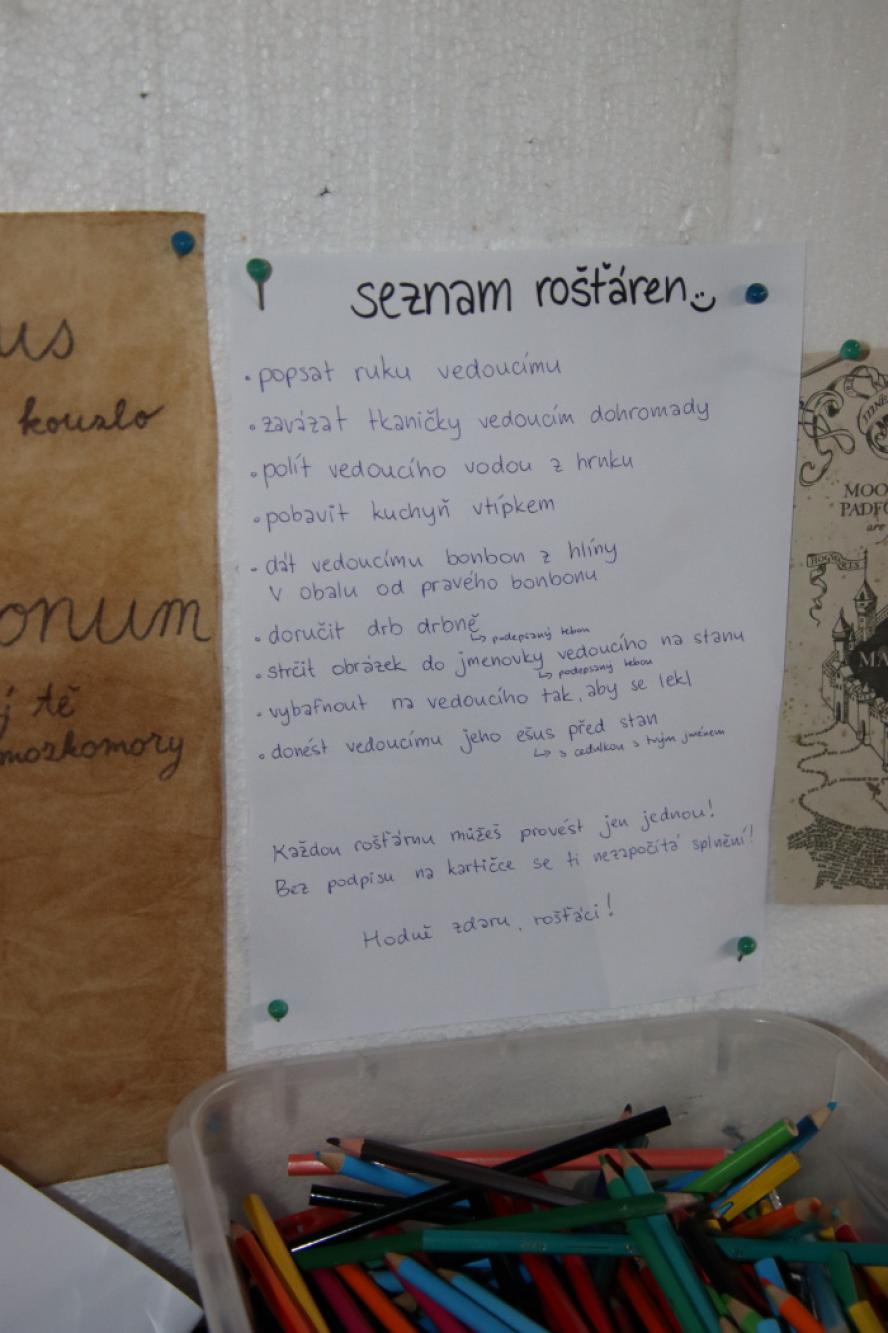 us
kouzlo
onum
j tě
mozkomory
seznam rošťáren
• popsat ruku vedoucímu
• zavázat tkaničky vedoucím dohromady
• polít vedoucího vodou z hrnku
• pobavit kuchyň vtípkem
• dát vedoucímu bonbon z hlíny
v obalu od pravého bonbonu
• doručit drb drbně
↳ podepsaný tebou
• strčit obrázek do jmenovky vedoucího na stanu
↳ podepsaný tebou
• vybafnout na vedoucího tak, aby se lekl
• donést vedoucímu jeho ešus před stan
↳ s cedulkou s tvým jménem
Každou rošťárnu můžeš provést jen jednou!
Bez podpisu na kartičce se ti nezapočítá splnění!
Hodně zdaru, rošťáci!
MOO
PADFO
are
HOGWARTS
MA